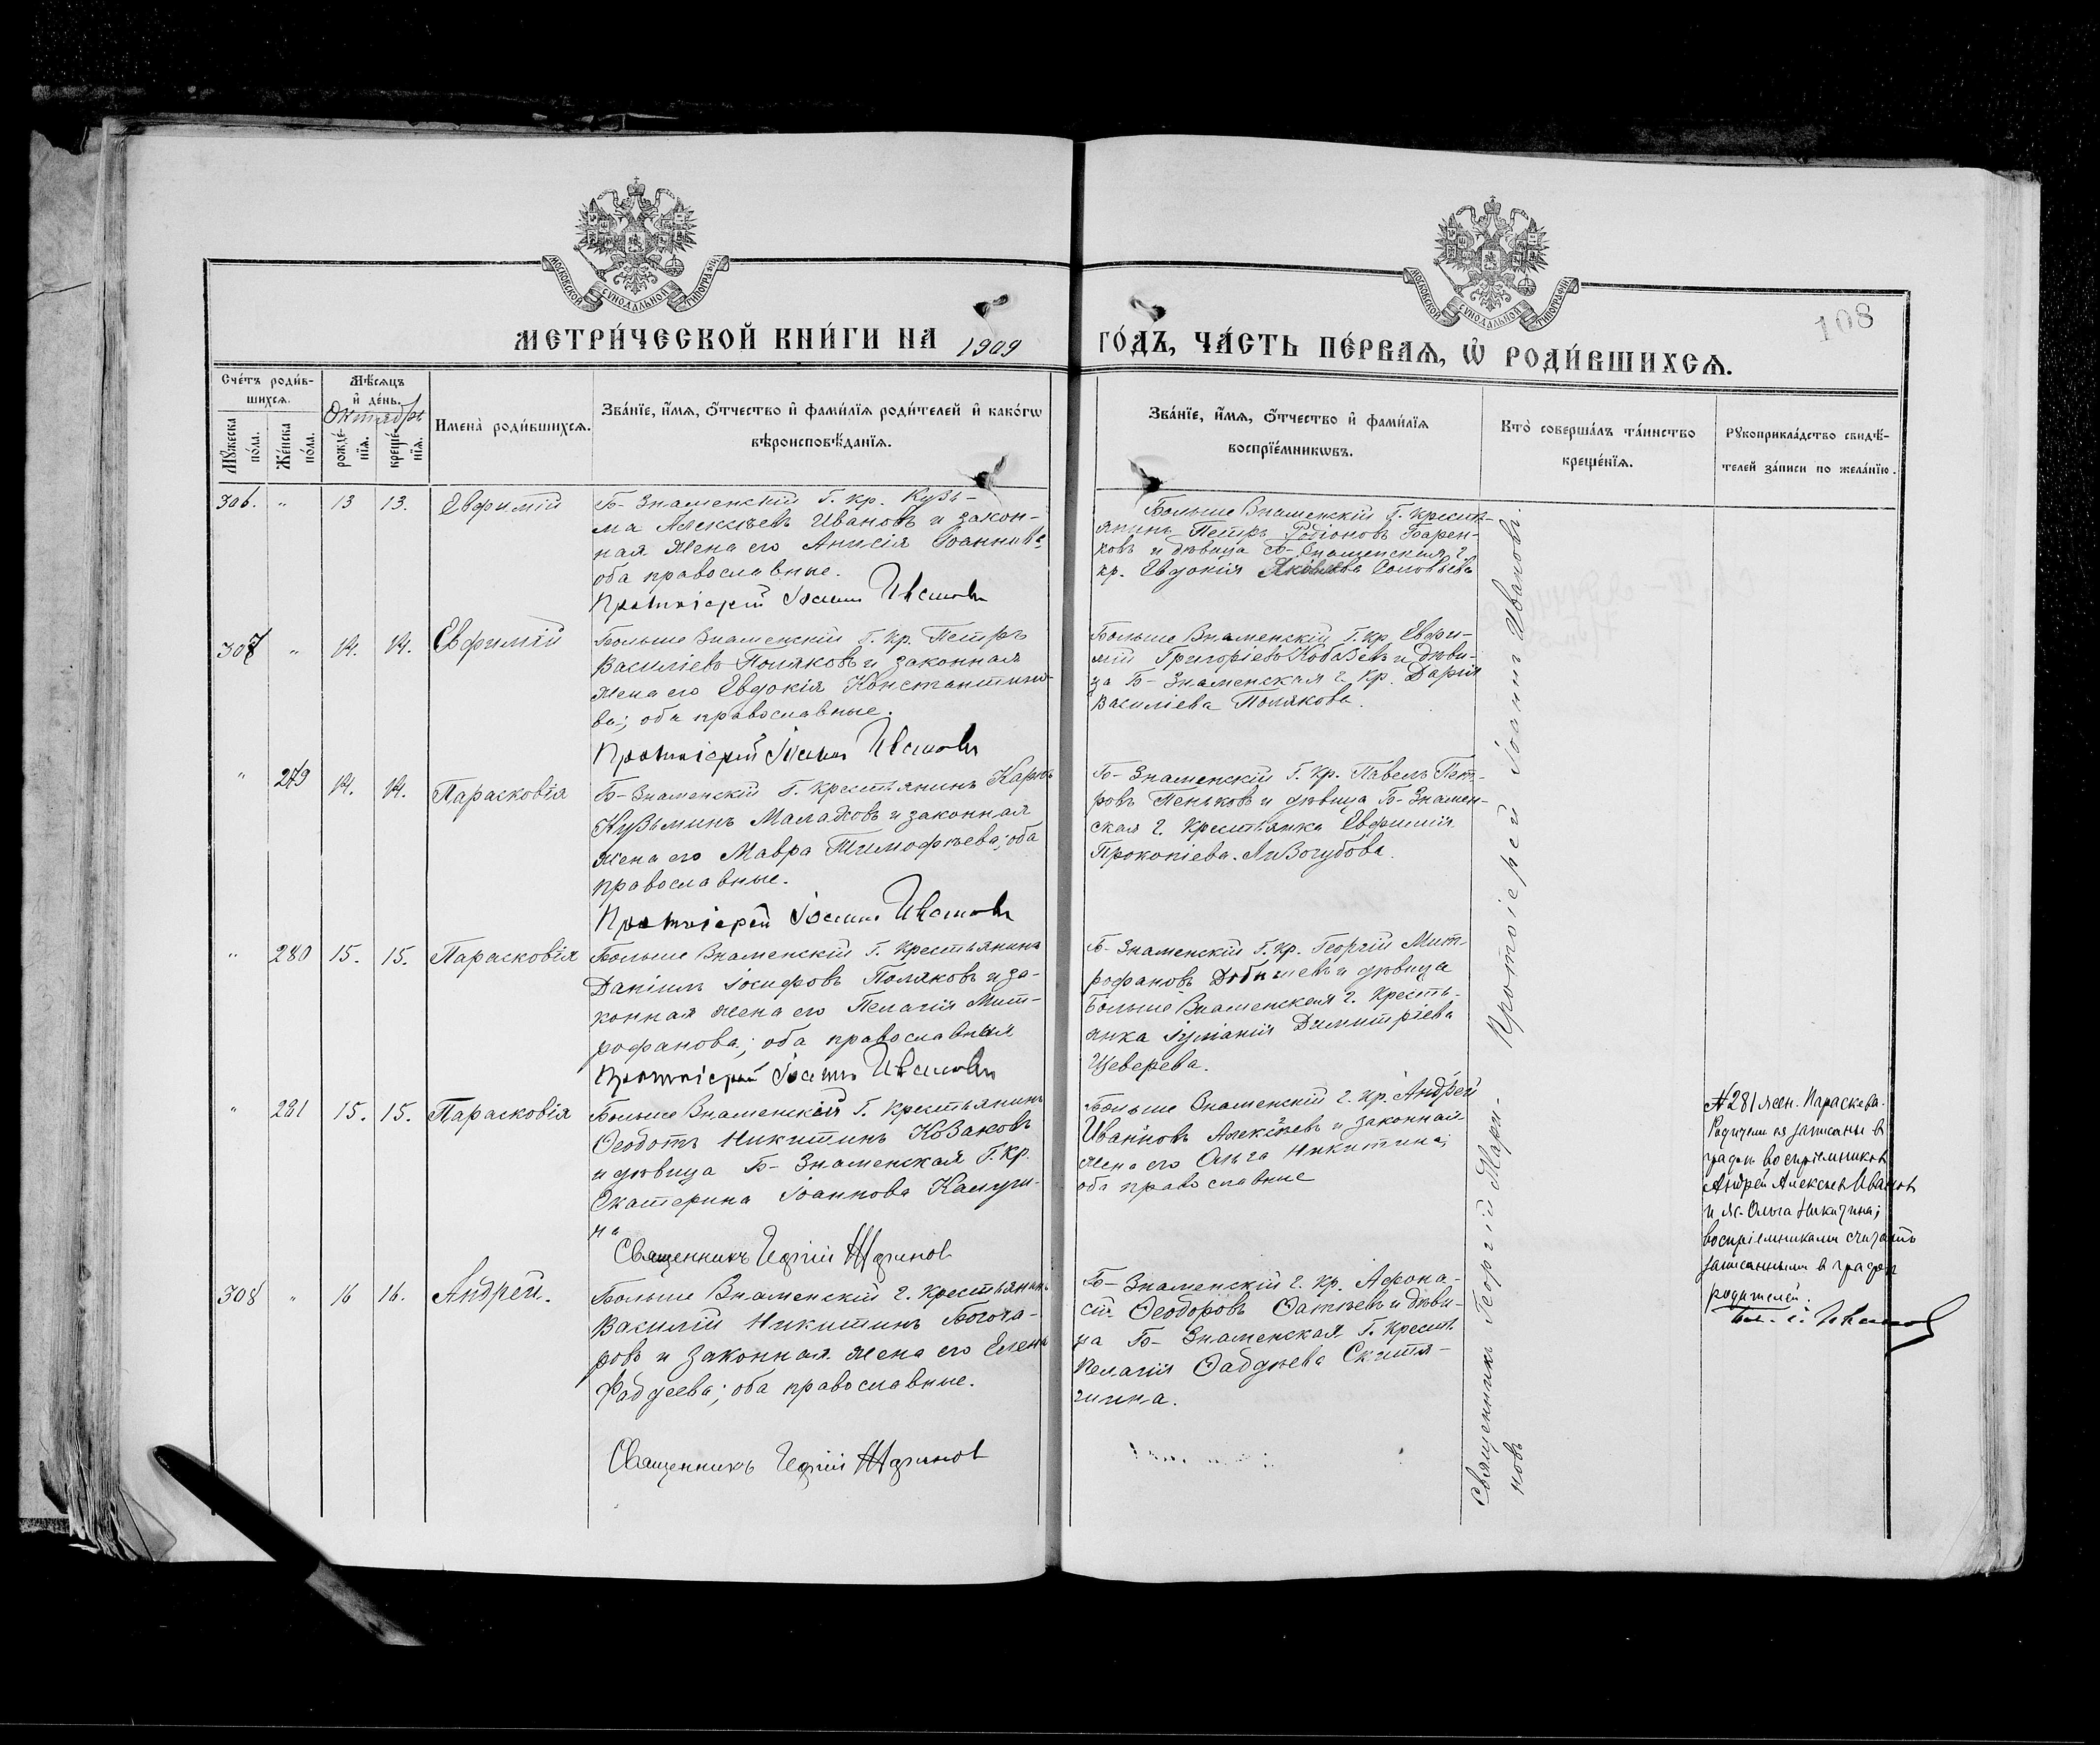 МОСКОВСКОЙ СУНОДАЛЬНОЙ ТИПОГРАФІИ
МОСКОВСКОЙ СУНОДАЛЬНОЙ ТИПОГРАФІИ
108
МЕТРИ́ЧЕСКОЙ КНИ́ГИ НА 1909
ГО́ДЪ, ЧА́СТЬ ПЕ́РВАѦ, Ѡ҆ РОДИ́ВШИХСѦ.
Сче́тъ роди́в-
шихсѧ.
Мꙋ́жеска по́ла.
Же́нска по́ла.
Мѣ́сѧцъ
и҆ де́нь.
Октябрь
рожде́-нїѧ.
креще́-нїѧ.
Имена̀ роди́вшихсѧ.
Зва́нїе, и҆́мѧ, ѻ҆́тчество и҆ фами́лїѧ роди́телей и҆ како́гѡ
вѣроисповѣ́данїѧ.
Зва́нїе, и҆́мѧ, ѻ҆́тчество и҆ фами́лїѧ
воспрїе́мникѡвъ.
Кто̀ соверша́лъ та́инство
креще́нїѧ.
Рꙋкоприкла́дство свидѣ́-
телей за́писи по жела́нїю.
306. " 13 13. Евфимій
Б-Знаменскій Г. кр. Кузь-
ма Алексѣевъ Ивановъ и закон-
ная жена его Анисія Іоаннова
оба православные.
Протоіерей Іоаннъ Ивановъ
Больше Знаменскій Г. крестья-
янинъ Петръ Родіоновъ Барен-
ковъ и дѣвица Б-Знаменская г.
кр. Евдокія Яковлева Соловьева
307 " 14. 14. Евфимій
Больше Знаменскій Г. кр. Петръ
Василіевъ Поляковъ и законная
жена его Евдокія Константино-
ва; оба православные.
Протоіерей Іоаннъ Ивановъ
Больше Знаменскій Г. кр. Евфи-
мій Григоріевъ Кобазевъ и дѣви-
ца Б-Знаменская г. кр. Дарія
Василіева Полякова.
" 279 14. 14. Парасковія
Б-Знаменскій Г. крестьянинъ Карпъ
Кузьминъ Малаховъ и законная
жена его Мавра Тимофѣева; оба
православные.
Протоіерей Іоаннъ Ивановъ
Б-Знаменскій Г. кр. Павелъ Пет-
ровъ Пеньковъ и дѣвица Б-Знамен-
ская г. крестьянка Евфимія
Прокопіева Лизогубова.
" 280 15. 15. Парасковія
Больше Знаменскій Г. крестьянинъ
Даніилъ Іосифовъ Поляковъ и за-
конная жена его Пелагія Мит-
рофанова; оба православныя
Протоіерей Іоаннъ Ивановъ
Б-Знаменскій Г. кр. Георгій Мит-
рофановъ и дѣвица
Больше Знаменская г. кресть-
янка Іуліанія Димитріева
Щеверева.
Протоіерей Іоаннъ Ивановъ
" 281 15. 15. Парасковія
Больше Знаменскій Г. крестьянинъ
Ѳеодотъ Никитинъ Козаковъ
и дѣвица Б-Знаменская Г. кр.
Екатерина Іоаннова Калуги-
на
Священникъ Георгій
Больше Знаменскій г. кр. Андрей
Ивановъ Алексѣевъ и законная
жена его Ольга Никитина;
оба православные
№ 281 жен. Параскева.
Родители ея записаны въ
графѣ воспріемниковъ
Андрей Алексѣевъ Ивановъ
и ж. Ольга Никитина;
воспріемниками считать
записанными въ графѣ
родителей.
308 " 16 16. Андрей.
Больше Знаменскій г. крестьянинъ
Василій Никитинъ Богоча-
ровъ и законная жена его Елена
Фаддеева; оба православные.
Священникъ Георгій
Б-Знаменскій г. кр. Афона-
сій Ѳеодоровъ Ѳатѣевъ и дѣви-
ца Б-Знаменская Г. крест.
Пелагія Ѳаддѣева
Священникъ Георгій Мари-
новъ